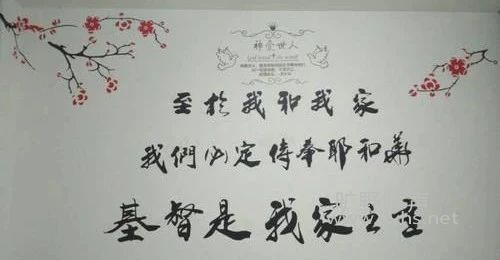 神愛世人
God loved the world
至於我和我家
我們必定侍奉耶和華
基督是我家之主